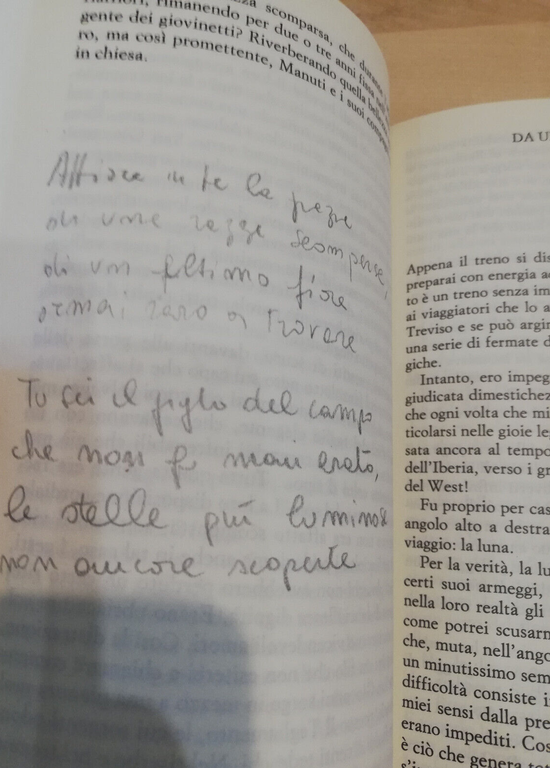 scomparsa, che durante
rimanendo per due o tre anni fissa
gente dei giovinetti? Riverberando quella
ro, ma così promettente, Manuti e i suoi
in chiesa.
in te la
di una razza scomparsa,
di un ultimo fiore
ormai raro a trovare
Tu sei il figlio del campo
che non fu mai arato,
la stella più luminosa
non ancora scoperta
DA U
Appena il treno si dis
preparai con energia a
to è un treno senza im
ai viaggiatori che lo a
Treviso e se può argi
una serie di fermate d
giche.
Intanto, ero impeg
giudicata dimestichez
che ogni volta che mi
ticolarsi nelle gioie le
sata ancora al tempo
dell'Iberia, verso i gr
del West!
Fu proprio per cas
angolo alto a destra
viaggio: la luna.
Per la verità, la lu
certi suoi armeggi,
nella loro realtà gli
come potrei scusarm
che, muta, nell'ango
un minutissimo sem
difficoltà consiste i
miei sensi dalla pre
erano impediti. Cos
è ciò che genera